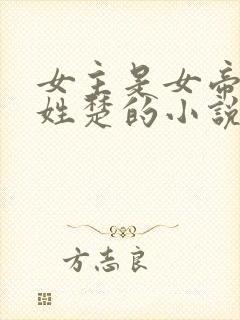 女主是女帝
姓楚的小說
方志良